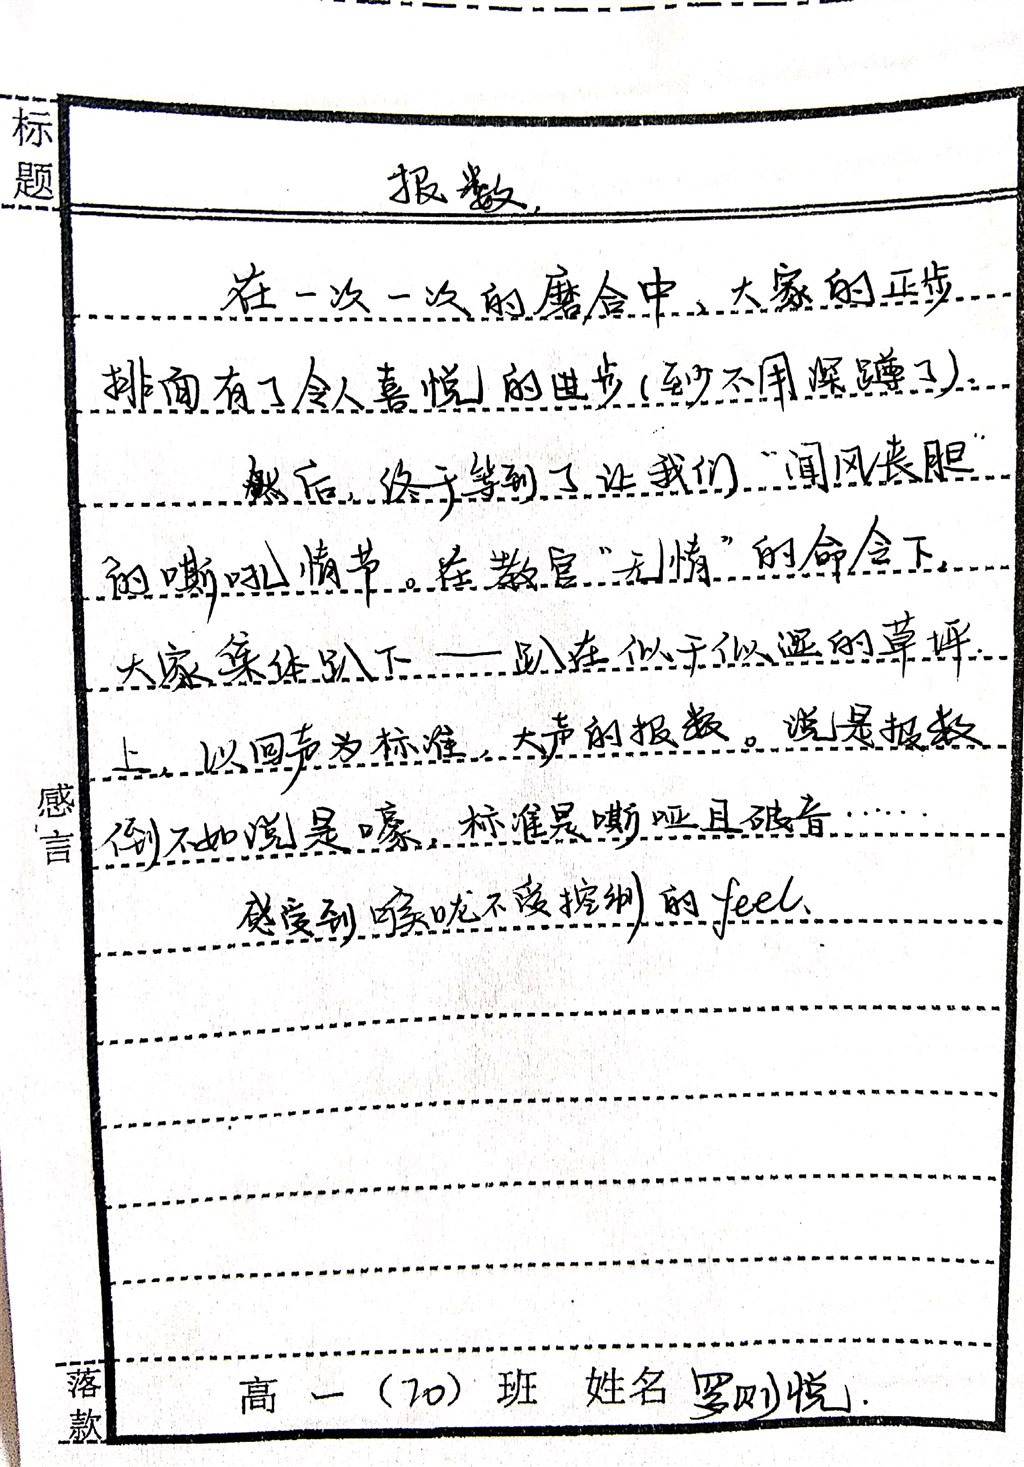 标题
报数.
在一次一次的磨合中、大家的正步
排面有了令人喜悦的进步(至少不用深蹲了).
然后,终于等到了让我们“闻风丧胆”
的嘶吼情节。在教官“无情”的命令下,
大家集体趴下——趴在似干似湿的草坪
上,以回声为标准,大声的报数。说是报数
倒不如说是嚎,标准是嘶哑且破音……
感言
感受到喉咙不受控制的feel、
落款
高一(20)班 姓名 罗则悦.